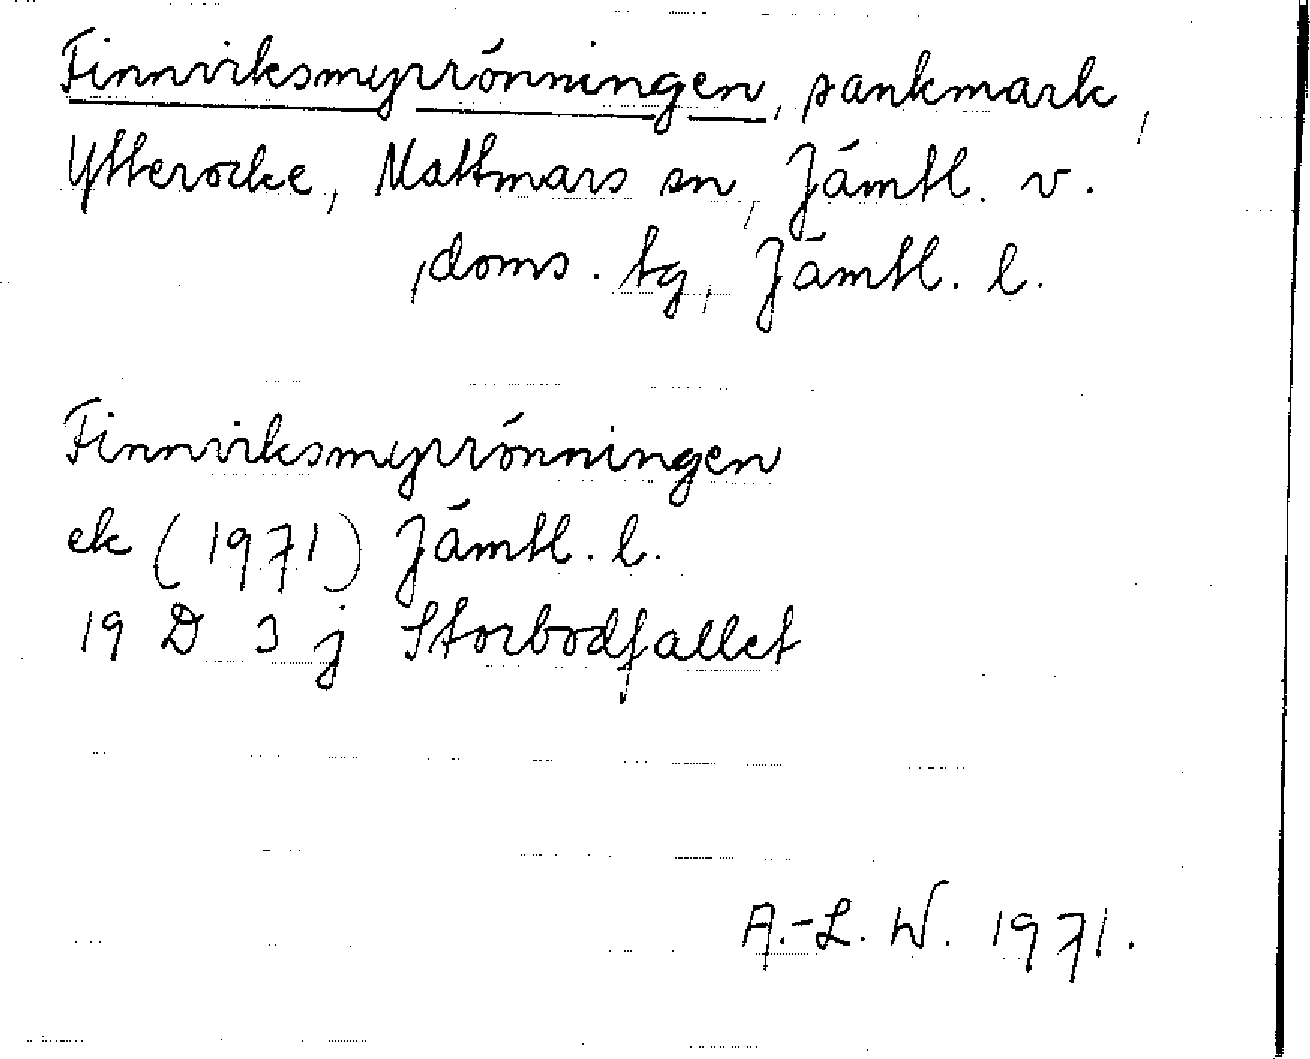 Finnviksmyrrönningen, sankmark,
Ytterocke, Mattmars sn, Jämtl. v.
doms. tg, Jämtl. l.
Finnviksmyrrönningen
ek (1971) Jämtl. l.
19 D 3 j Storbodfallet
A.-L. W. 1971.